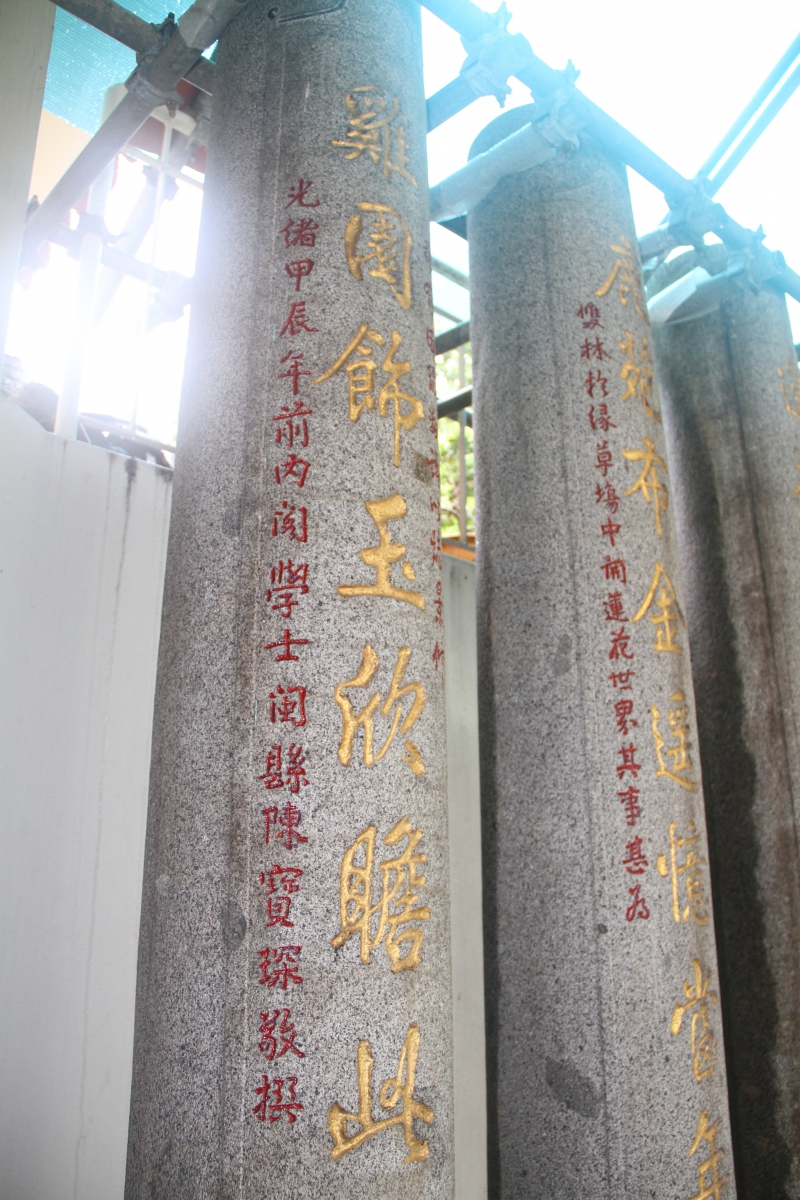 鹿苑布金遥憶當年
雙林於緣草塲中開蓮花世界其事甚為
雞園飾玉欣瞻此
光緒甲辰年前內閣學士閩縣陳寶琛敬撰